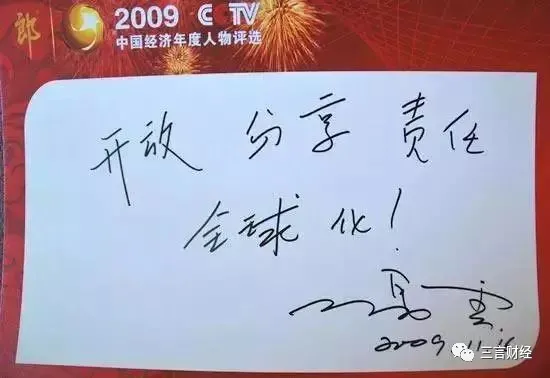 郎 2009 CCTV
中国经济年度人物评选
开放 分享 责任
全球化!
马云
2009.11.16
三言财经